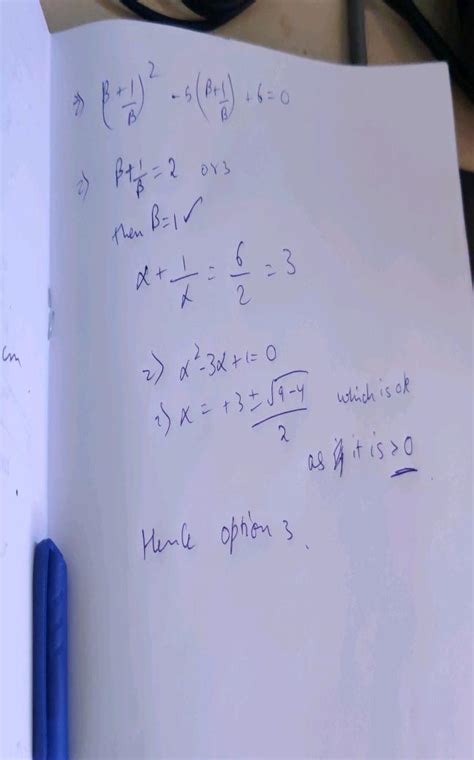 ⇒ (β + 1/β)² - 5(β+1/β) + 6 = 0
⇒) β+1/β = 2 or 3
then B=1 ✓
α + 1/α = 6/2 = 3
⇒) α² - 3α + 1 = 0
cm
⇒) α = +3 ± √9-4 / 2 which is ok
as it is > 0
Hence option 3.